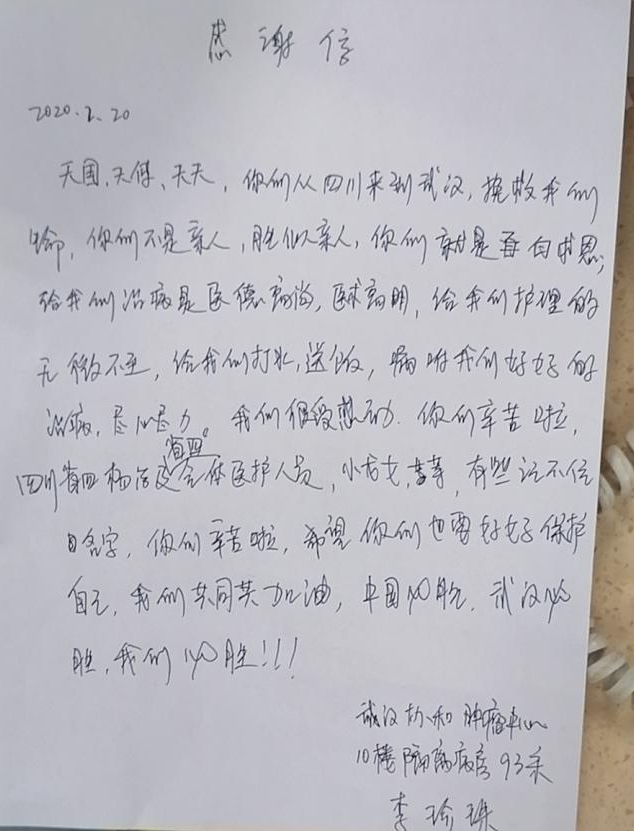 感谢信
2020.2.20
天国、天使、天天，你们从四川来到武汉，挽救我们
生命，你们不是亲人，胜似亲人，你们就是再白求恩，
给我们治病是医德高尚，医术高明，给我们护理的
无微不至，给我们打水，送饭，嘱咐我们好好的
治病，尽心尽力。我们很受感动。你们辛苦啦，
省四
四川省四杨 及全体医护人员，小 ，有些记不住
名字，你们辛苦啦，希望你们也要好好保护
自己，我们共同 加油，中国必胜，武汉必
胜，我们必胜！！！
武汉协和肿瘤中心
10楼隔离病房93床
李珍珠